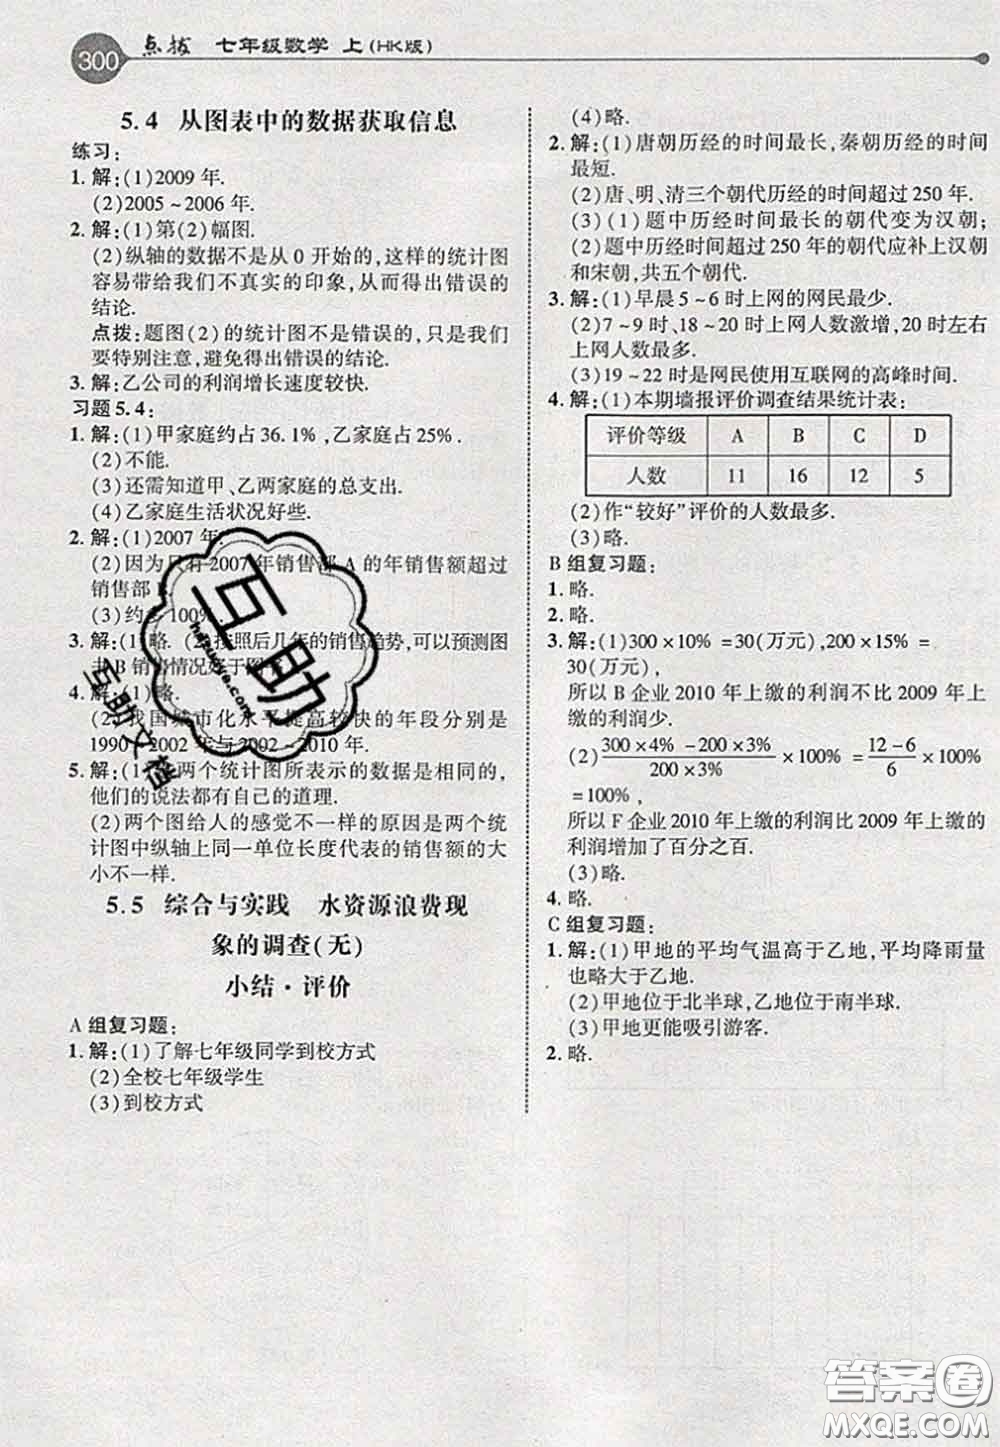 300 点拨 七年级数学 上(HK版)
5.4 从图表中的数据获取信息
练习:
1. 解:(1)2009 年.
(2)2005~2006 年.
2. 解:(1)第(2)幅图.
(2)纵轴的数据不是从 0 开始的,这样的统计图
容易带给我们不真实的印象,从而得出错误的
结论.
点拨:题图(2)的统计图不是错误的,只是我们
要特别注意,避免得出错误的结论.
3. 解:乙公司的利润增长速度较快.
习题 5.4:
1. 解:(1)甲家庭约占 36.1%,乙家庭占 25%.
(2)不能.
(3)还需知道甲、乙两家庭的总支出.
(4)乙家庭生活状况好些.
2. 解:(1)2007 年.
(2)因为只有 2007 年销售部 A 的年销售额超过
销售部
(3)约 100%
3. 解:(1)略. (2)按照后几年的销售趋势,可以预测图
书 B 销售情况好于图书
4. 解:(1)略.
(2)我国城市化水平提高较快的年段分别是
1990~2002 年与 2002~2010 年.
5. 解:(1)两个统计图所表示的数据是相同的,
他们的说法都有自己的道理.
(2)两个图给人的感觉不一样的原因是两个统
计图中纵轴上同一单位长度代表的销售额的大
小不一样.
5.5 综合与实践 水资源浪费现
象的调查(无)
小结·评价
A 组复习题:
1. 解:(1)了解七年级同学到校方式
(2)全校七年级学生
(3)到校方式
(4)略.
2. 解:(1)唐朝历经的时间最长,秦朝历经的时间
最短.
(2)唐、明、清三个朝代历经的时间超过 250 年.
(3)(1)题中历经时间最长的朝代变为汉朝;
(2)题中历经时间超过 250 年的朝代应补上汉朝
和宋朝,共五个朝代.
3. 解:(1)早晨 5~6 时上网的网民最少.
(2)7~9 时、18~20 时上网人数激增,20 时左右
上网人数最多.
(3)19~22 时是网民使用互联网的高峰时间.
4. 解:(1)本期墙报评价调查结果统计表:
评价等级 A B C D
人数 11 16 12 5
(2)作“较好”评价的人数最多.
(3)略.
B 组复习题:
1. 略.
2. 略.
3. 解:(1)300×10% =30(万元),200×15% =
30(万元),
所以 B 企业 2010 年上缴的利润不比 2009 年上
缴的利润少.
(2)(300×4% -200×3%)/(200×3%) ×100% = (12-6)/6 ×100%
=100%,
所以 F 企业 2010 年上缴的利润比 2009 年上缴
的利润增加了百分之百.
(3)略.
4. 略.
C 组复习题:
1. 解:(1)甲地的平均气温高于乙地,平均降雨量
也略大于乙地.
(2)甲地位于北半球,乙地位于南半球.
(3)甲地更能吸引游客.
2. 略.
互助
互助文档
答案圈
MXQE.COM